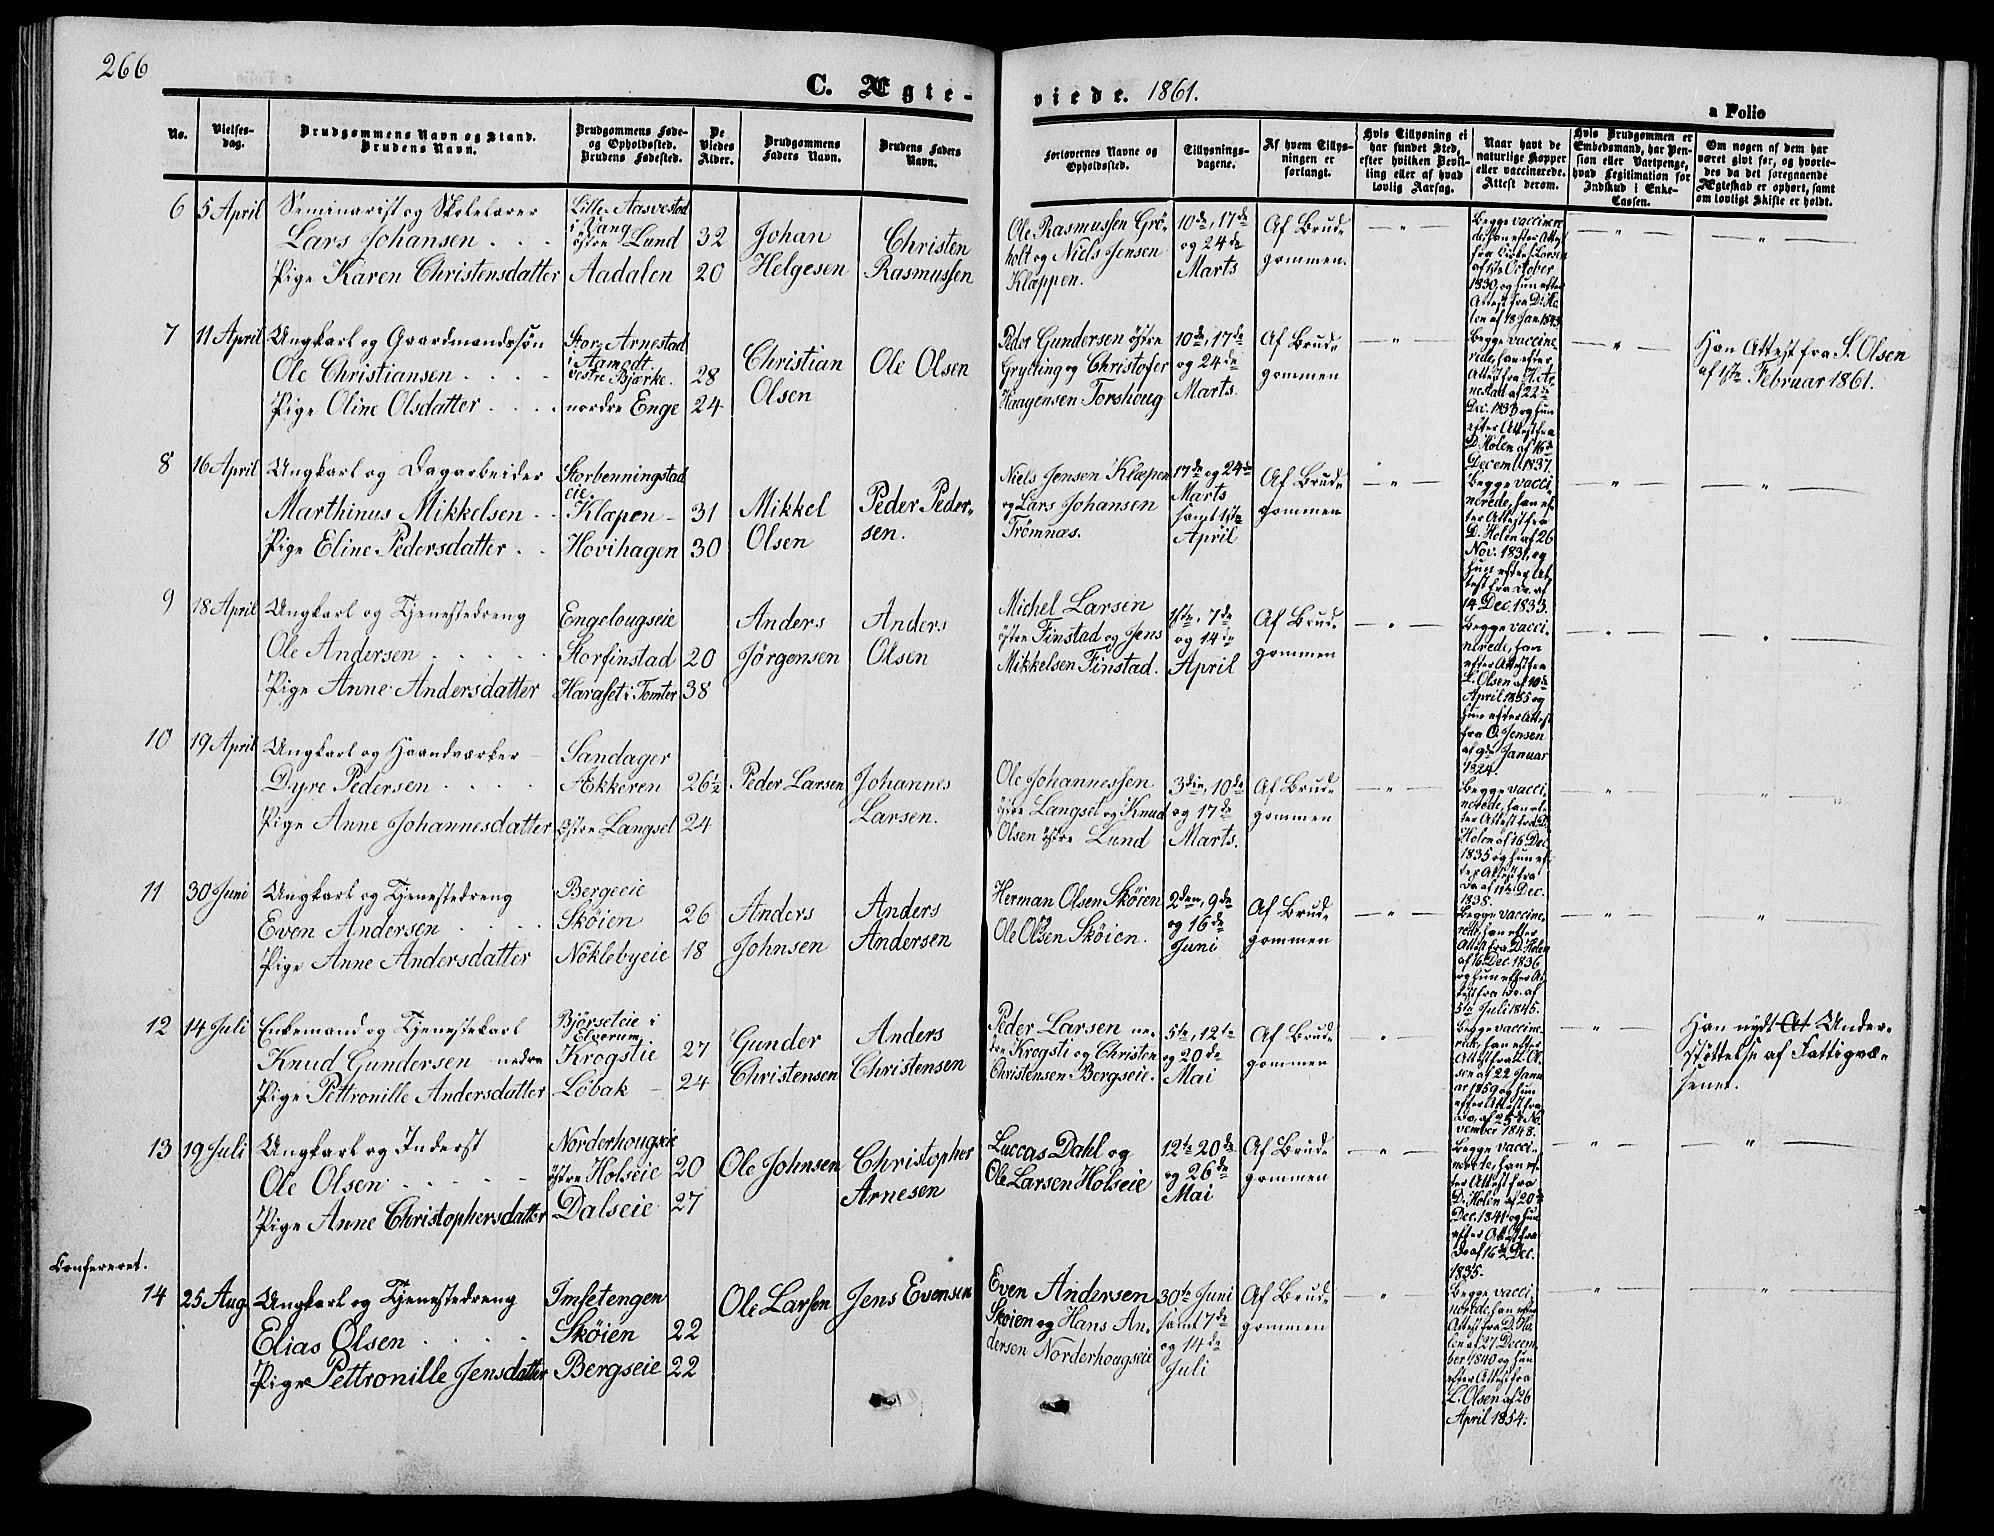 266
C. Ægte-
viede. 1861.
a Folio
No.
Vielses-
dag.
Brudgommens Navn og Stand.
Brudens Navn.
Brudgommens Føde-
og Opholdssted.
Brudens Fødested.
De
Viedes
Alder.
Brudgommens
Faders Navn.
Brudens Faders
Navn.
Forlovernes Navne og
Opholdssted.
Tillysnings-
dagene.
Af hvem Tillys-
ningen er
forlangt.
Hvis Tillysning ei
har fundet Sted,
efter hvilken Bevil-
ling eller af hvad
lovlig Aarsag.
Naar havt de
naturlige Kopper
eller vaccinerede.
Attest derom.
Hvis Brudgommen er
Embedsmand, har Pen-
sion eller Vartpenge,
hvad Legitimation for
Indskud i Enke-
Cassen.
Om nogen af dem har
været gift før, og hvorle-
des da det foregaaende
Ægteskab er ophørt, samt
om lovligt Skifte er holdt.
6
5 April
Seminarist og Skolelærer
Lars Johansen
Pige Karen Christensdatter
Lille Aasvestad
i Vang
østre Lund
Aadalen
32
20
Johan
Helgesen
Christen
Rasmussen
Ole Rasmussen Grø-
holt og Niels Jensen
Klæppen.
10de, 17de
og 24de
Marts
Af Brud-
gommen.
Begge vaccinere-
de, han efter Attest
fra Larsen
af 1ste October
1830, og hun efter
Attest fra D. Ho-
len af 18 Jan. 1843.
7
11 April
Ungkarl og Gaardmandssøn
Ole Christiansen
Pige Oline Olsdatter
Stor Arnestad
i Aamodt.
vestre Bjørke.
nordre Enge
28
24
Christian
Olsen
Ole Olsen
Peder Gundersen østre
Grytting og Christofer
Haagensen Torshoug
10de, 17de
og 24de
Marts.
Af Brud-
gommen
Begge vaccine-
rede, han efter
Attest fra
af 22de
Dec. 1833 og hun
efter Attest fra
D. Holen af 16de
Decemb. 1837.
Han Attest fra S. Olsen
af 1ste Februar 1861.
8
16 April
Ungkarl og Dagarbeider
Marthinus Mikkelsen
Pige Eline Pedersdatter
Storbenningstad
eie.
Klæpen
Hovihagen
31
30
Mikkel
Olsen
Peder Peder-
sen.
Niels Jensen Klæpen
og Lars Johansen
Trømnæs.
17de og 24de
Marts
samt 1ste
April
Af Brud-
gommen
Begge vacci-
nerede, han ef-
ter Attest fra
D. Holen af 26
Nov. 1831, og
hun efter At-
test fra Do. af
14 Dec. 1833.
9
18 April
Ungkarl og Tjenestedreng
Ole Andersen
Pige Anne Andersdatter
Engelougseie
Storfinstad
Haraset i Tomter
20
38
Anders
Jørgensen
Anders
Olsen
Michel Larsen
østre Finstad og Jens
Mikkelsen Finstad.
1ste, 7de
og 14de
April
Af Brud-
gommen
Begge vacci-
nerede, han
efter Attest fra
L. Olsen af 10de
April 1855 og
hun efter Attest
fra O. Jensen
af 9de Januar
1824.
10
19 April
Ungkarl og Haandværker
Dyre Pedersen
Pige Anne Johannesdatter
Sandager
Ækkeren
østre Langset
26½
24
Peder Larsen
Johannes
Larsen.
Ole Johannessen
østre Langsel og Knud
Olsen østre Lund
3die, 10de
og 17de
Marts.
Af Brud-
gommen
Begge vacci-
nerede, han ef-
ter Attest fra D.
Holen af 16 Dec.
1835 og hun ef-
ter Attest fra
Do af 11te Dec.
1838.
11
30 Juni
Ungkarl og Tjenestedreng
Even Andersen
Pige Anne Andersdatter
Bergeeie
Skøien
Nøklebyeie
26
18
Anders
Johnsen
Anders
Andersen
Herman Olsen Skøien
og
Ole Olsen Skøien.
2den, 9de
og 16de
Juni
Af Brud-
gommen
Begge vaccine-
rede, han efter
Attest fra D. Holen
af 16 Dec. 1836
og hun efter At-
test fra Do. af
5te Juli 1845.
12
14 Juli
Enkemand og Tjenestekarl
Knud Gundersen nedre
Pige Pettronille Andersdatter
Bjørseteie i
Elverum
Krogstie
Løbak
27
24
Gunder
Christensen
Anders
Christensen
Peder Larsen ne-
dre Krogsti og Christen
Christensen Bergseie.
5te, 12te
og 20de
Mai
Af Brud-
gommen
Begge vaccine-
rede, han efter
Attest fra L. Ol-
sen af 22 Janu-
ar 1859 og hun
efter Attest fra
Do, af 25de No-
vember 1848.
Han nydt At Under-
støttelse af Fattigvæ-
senet.
13
19 Juli
Ungkarl og Inderst
Ole Olsen
Pige Anne Christophersdatter
Norderhougseie
østre Holseie
Dalseie
20
27
Ole Johnsen
Christopher
Arnesen
Luccas Dahl og
Ole Larsen Holseie
12te 20de
og 26de
Mai
Af Brud-
gommen
Begge vacci-
nerede, han ef-
ter Attest fra
D. Holen af 20de
Dec. 1841 og hun
efter Attest fra
Do af 16de Dec.
1835.
Confereret.
14
25 Aug.
Ungkarl og Tjenestedreng
Elias Olsen
Pige Pettronille Jensdatter
Imsetengen
Skøien
Bergseie
22
22
Ole Larsen
Jens Evensen
Even Andersen
Skøien og Hans An-
dersen Norderhougseie
30te Juni
samt 7de
og 14de
Juli
Af Brud-
gommen
Begge vacci-
nerede, han efter
Attest fra D. Ho-
len af 27 Decem-
ber 1840 og hun
efter Attest fra
L. Olsen af 26
April 1854.